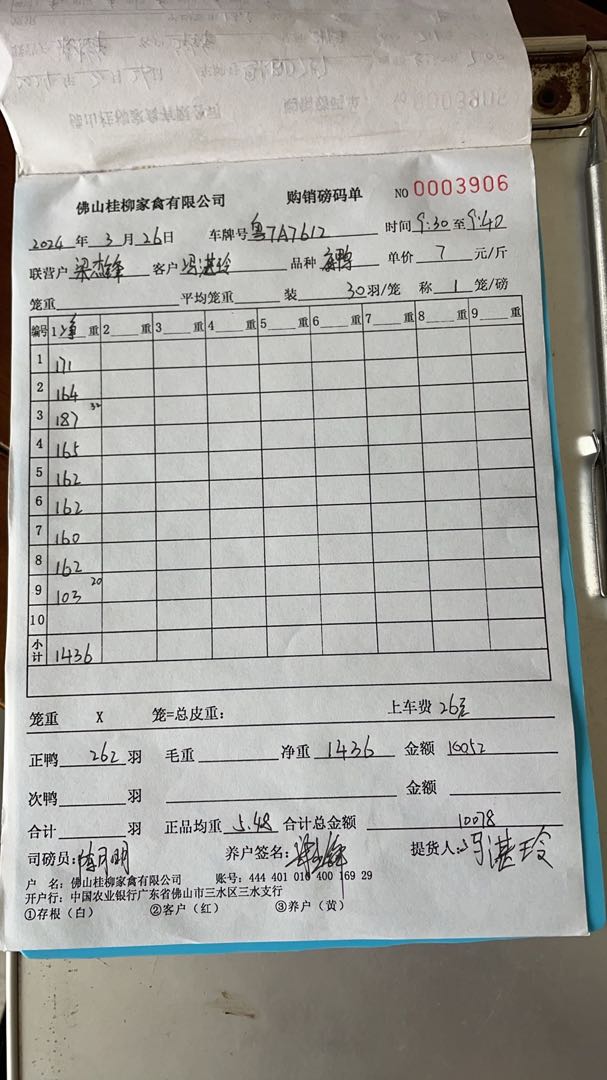 佛山桂柳家禽有限公司 购销磅码单 NO 0003906
2024 年 3 月 26 日 车牌号 粤7A7612 时间 9:30 至 9:40
联营户 梁杰锋 客户 冯湛玲 品种 单价 7 元/斤
笼重 平均笼重 装 30 羽/笼 称 1 笼/磅
编号 1 净 重 2 重 3 重 4 重 5 重 6 重 7 重 8 重 9 重
1 171
2 164
3 187 32
4 165
5 162
6 162
7 160
8 162
9 103 20
10
小计 1436
笼重 X 笼=总皮重: 上车费 26元
正鸭 262 羽 毛重 净重 1436 金额 10052
次鸭 羽 金额
合计 羽 正品均重 5.48 合计总金额 10078
司磅员: 养户签名: 提货人: 冯湛玲
户 名: 佛山桂柳家禽有限公司 账号: 444 401 010 400 169 29
开户行: 中国农业银行广东省佛山市三水区三水支行
①存根（白） ②客户（红） ③养户（黄）